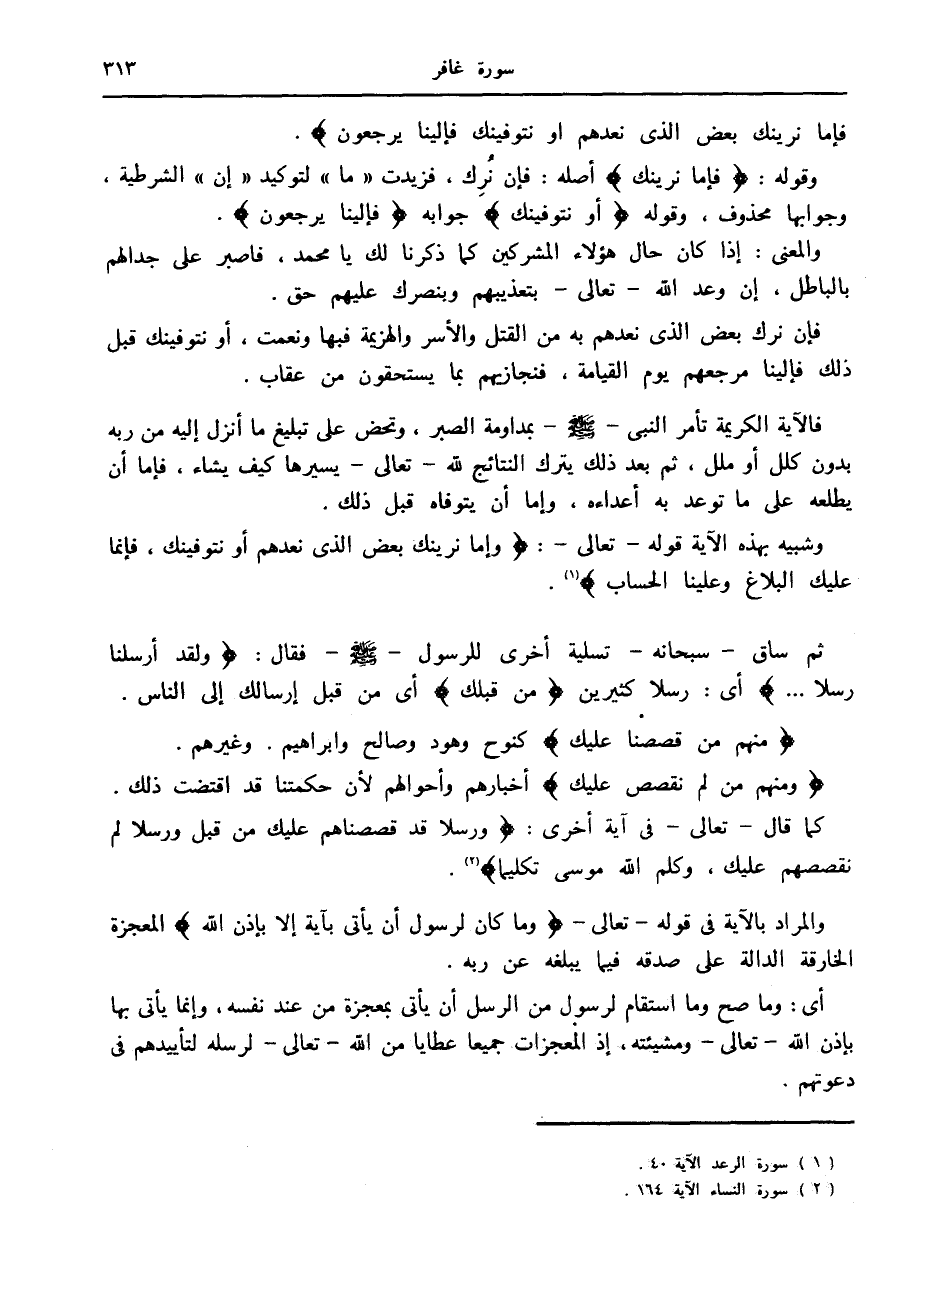 سورة غافر
٣١٣
فإما نرينك بعض الذى نعدهم او نتوفينك فإلينا يرجعون ﴾ .
وقوله : ﴿ فإما نرينك ﴾ أصله : فإن نُرِك ، فزيدت « ما » لتوكيد « إن » الشرطية ،
وجوابها محذوف ، وقوله ﴿ أو نتوفينك ﴾ جوابه ﴿ فإلينا يرجعون ﴾ .
والمعنى : إذا كان حال هؤلاء المشركين كما ذكرنا لك يا محمد ، فاصبر على جدالهم
بالباطل ، إن وعد الله - تعالى - بتعذيبهم وبنصرك عليهم حق .
فإن نرك بعض الذى نعدهم به من القتل والأسر والهزيمة فبها ونعمت ، أو نتوفينك قبل
ذلك فإلينا مرجعهم يوم القيامة ، فنجازيهم بما يستحقون من عقاب .
فالآية الكريمة تأمر النبى - ﷺ - بمداومة الصبر ، وتحض على تبليغ ما أنزل إليه من ربه
بدون كلل أو ملل ، ثم بعد ذلك يترك النتائج لله - تعالى - يسيرها كيف يشاء ، فإما أن
يطلعه على ما توعد به أعداءه ، وإما أن يتوفاه قبل ذلك .
وشبيه بهذه الآية قوله - تعالى - : ﴿ وإما نرينك بعض الذى نعدهم أو نتوفينك ، فإنما
عليك البلاغ وعلينا الحساب ﴾(١) .
ثم ساق - سبحانه - تسلية أخرى للرسول - ﷺ - فقال : ﴿ ولقد أرسلنا
رسلا ... ﴾ أى : رسلا كثيرين ﴿ من قبلك ﴾ أى من قبل إرسالك إلى الناس .
﴿ منهم من قصصنا عليك ﴾ كنوح وهود وصالح وابراهيم . وغيرهم .
﴿ ومنهم من لم نقصص عليك ﴾ أخبارهم وأحوالهم لأن حكمتنا قد اقتضت ذلك .
كما قال - تعالى - فى آية أخرى : ﴿ ورسلا قد قصصناهم عليك من قبل ورسلا لم
نقصصهم عليك ، وكلم الله موسى تكليما﴾(٢) .
والمراد بالآية فى قوله - تعالى - ﴿ وما كان لرسول أن يأتى بآية إلا بإذن الله ﴾ المعجزة
الخارقة الدالة على صدقه فيما يبلغه عن ربه .
أى : وما صح وما استقام لرسول من الرسل أن يأتى بمعجزة من عند نفسه ، وإنما يأتى بها
بإذن الله - تعالى - ومشيئته ، إذ المعجزات جميعا عطايا من الله - تعالى - لرسله لتأييدهم فى
دعوتهم .
( ١ ) سورة الرعد الآية ٤٠ .
( ٢ ) سورة النساء الآية ١٦٤ .